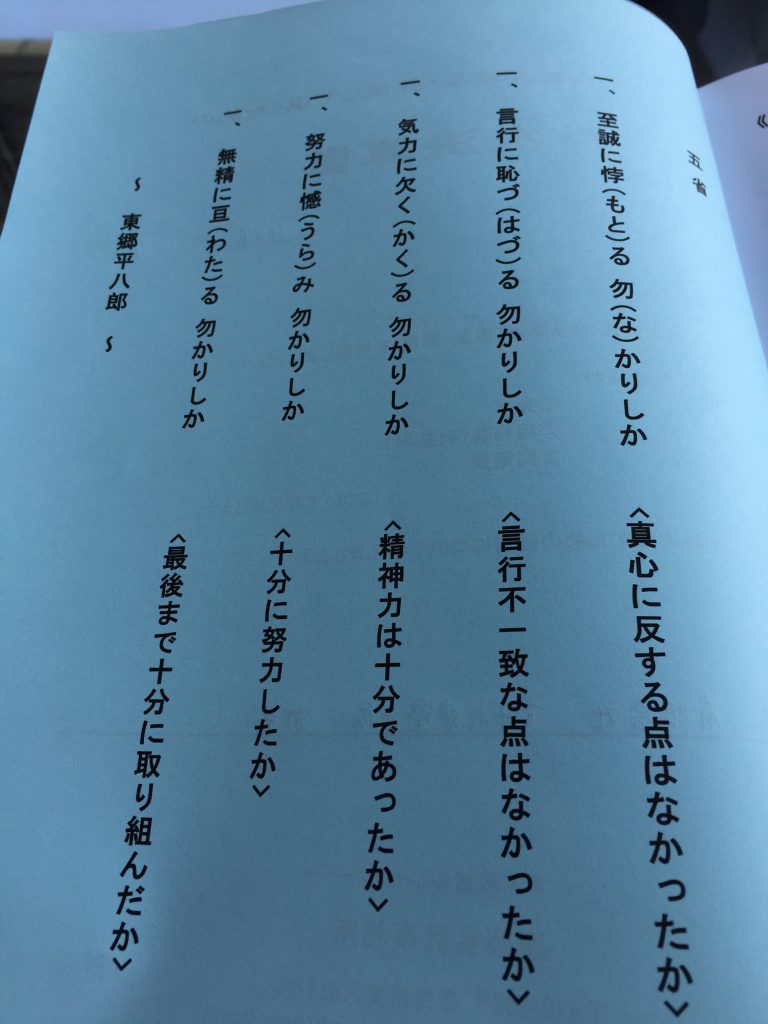 五省
一、至誠に悖(もと)る 勿(な)かりしか
<真心に反する点はなかったか>
一、言行に恥づ(はづ)る 勿かりしか
<言行不一致な点はなかったか>
一、気力に欠く(かく)る 勿かりしか
<精神力は十分であったか>
一、努力に憾(うら)み 勿かりしか
<十分に努力したか>
一、無精に亘(わた)る 勿かりしか
<最後まで十分に取り組んだか>
~ 東郷平八郎 ~
《